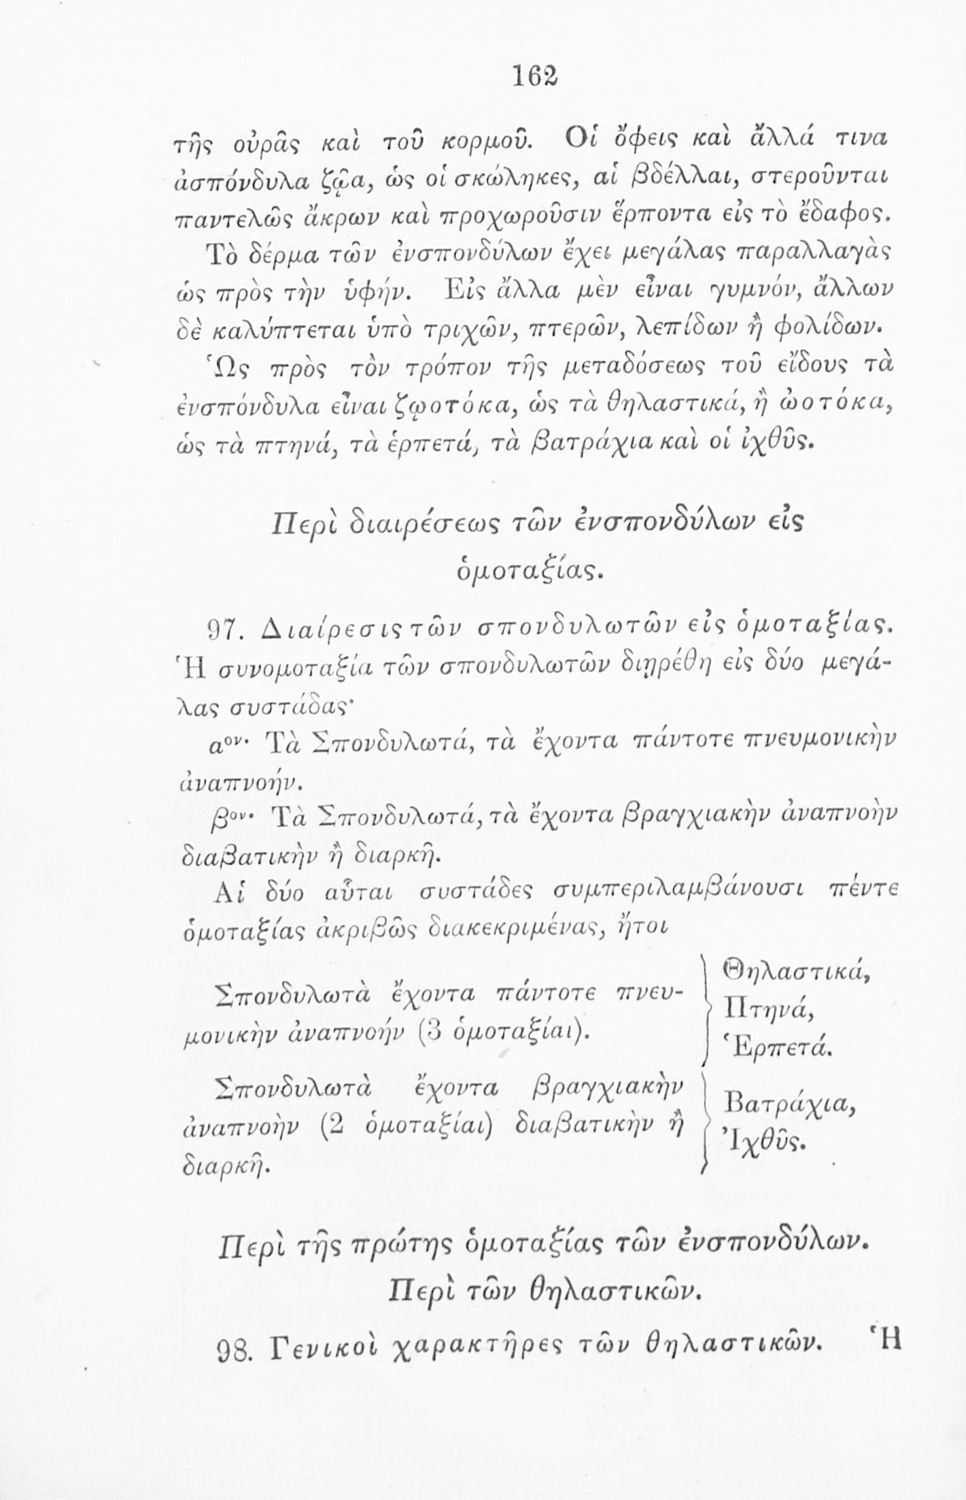 162
τῆς οὐρᾶς καὶ τοῦ κορμοῦ. Οἱ ὄφεις καὶ ἄλλά τινα
ἀσπόνδυλα ζῷα, ὡς οἱ σκώληκες, αἱ βδέλλαι, στεροῦνται
παντελῶς ἄκρων καὶ προχωροῦσιν ἕρποντα εἰς τὸ ἔδαφος.
Τὸ δέρμα τῶν ἐνσπονδύλων ἔχει μεγάλας παραλλαγὰς
ὡς πρὸς τὴν ὑφήν. Εἰς ἄλλα μὲν εἶναι γυμνόν, ἄλλων
δὲ καλύπτεται ὑπὸ τριχῶν, πτερῶν, λεπίδων ἢ φολίδων.
Ὡς πρὸς τὸν τρόπον τῆς μεταδόσεως τοῦ εἴδους τὰ
ἐνσπόνδυλα εἶναι ζῳοτόκα, ὡς τὰ θηλαστικά, ἢ ὠοτόκα,
ὡς τὰ πτηνά, τὰ ἑρπετά, τὰ βατράχια καὶ οἱ ἰχθῦς.
Περὶ διαιρέσεως τῶν ἐνσπονδύλων εἰς
ὁμοταξίας.
97. Διαίρεσις τῶν σπονδυλωτῶν εἰς ὁμοταξίας.
Ἡ συνομοταξία τῶν σπονδυλωτῶν διῃρέθη εἰς δύο μεγά-
λας συστάδας·
αον· Τὰ Σπονδυλωτά, τὰ ἔχοντα πάντοτε πνευμονικὴν
ἀναπνοήν.
βον· Τὰ Σπονδυλωτά, τὰ ἔχοντα βραγχιακὴν ἀναπνοὴν
διαβατικὴν ἢ διαρκῆ.
Αἱ δύο αὗται συστάδες συμπεριλαμβάνουσι πέντε
ὁμοταξίας ἀκριβῶς διακεκριμένας, ἤτοι
Σπονδυλωτὰ ἔχοντα πάντοτε πνευ-
μονικὴν ἀναπνοήν (3 ὁμοταξίαι).
Θηλαστικά,
Πτηνά,
Ἑρπετά.
Σπονδυλωτὰ ἔχοντα βραγχιακὴν
ἀναπνοὴν (2 ὁμοταξίαι) διαβατικὴν ἢ
διαρκῆ.
Βατράχια,
Ἰχθῦς.
Περὶ τῆς πρώτης ὁμοταξίας τῶν ἐνσπονδύλων.
Περὶ τῶν θηλαστικῶν.
98. Γενικοὶ χαρακτῆρες τῶν θηλαστικῶν. Ἡ